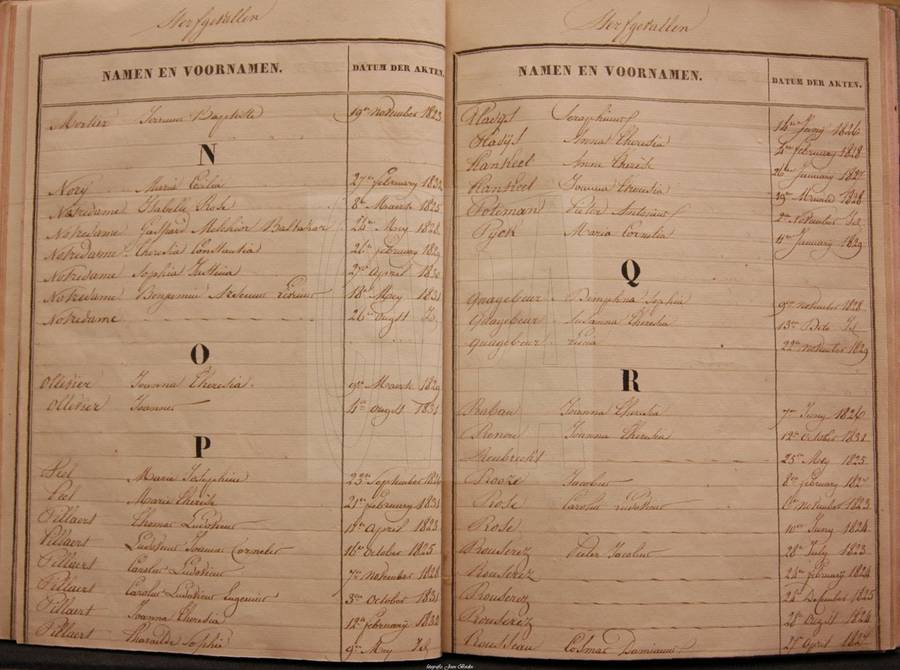 Sterfgevallen
NAMEN EN VOORNAMEN. DATUM DER AKTEN.
Mortier Joannes Baptiste 19en November 1823
N
Nory Maria Cecilia 27en february
Notredame Isabelle Rose 8en Maart 1825
Notredame Gaspard Melchior Balthazar 24en Mey 1828
Notredame Theresia Constantia february 1829
Notredame Sophia Justina 27en April 1830
Notredame Benjamin 18en Mey 1831
Notredame 26en augst Id.
O
Ollivier Joanna Theresia 9en Maart 1829
Ollivier Joannes 4en augst 1831
P
Piel Marie Josephine 23en September
Piel Marie Therese 21en february 1831
Pillaert Thomas Ludovicus 18en April 1823
Pillaert Ludovicus Joannes Cornelis 16en October 1825
Pillaert Carolus Ludovicus 7en November 1828
Pillaert Carolus Ludovicus Eugenius 3en October 1831
Pillaert Joanna Theresia 12en february 1830
Pillaert Sophie 9en Mey Id.
Sterfgevallen
NAMEN EN VOORNAMEN. DATUM DER AKTEN.
Pladijs Seraphinus 14en Juny 1826
Pladijs Anna Theresia 4en february 1828
Plankeel Anne Therese 26en January 1827
Plankeel Joanna Theresia 29en Maart 1828
Potteman Pieter Antonius 2en November Id.
Pyck Maria Cornelia 4en January 1829
Q
Quagebeur Dimphna Sophia 9en November 1828
Quagebeur Susanna Theresia 13en Dito Id.
Quagebeur Lucia 22en November 1829
R
Rabau Joanna Theresia 7en Juny 1826
Renou Joanna Theresia 12en October 1831
25en Mey 1825
Rooze Jacobus 8en february
Rose Carolus Ludovicus November 1823
Rose 10en Juny 1824
Rouserez Pieter Jacobus 28en July 1823
Rouserez 24en february 1824
Rouserez 24en December 1825
Rouserez 28en Augst 1826
Rousseau Cosmas Damianus 27en April 1827
fotografie Joan Boekx